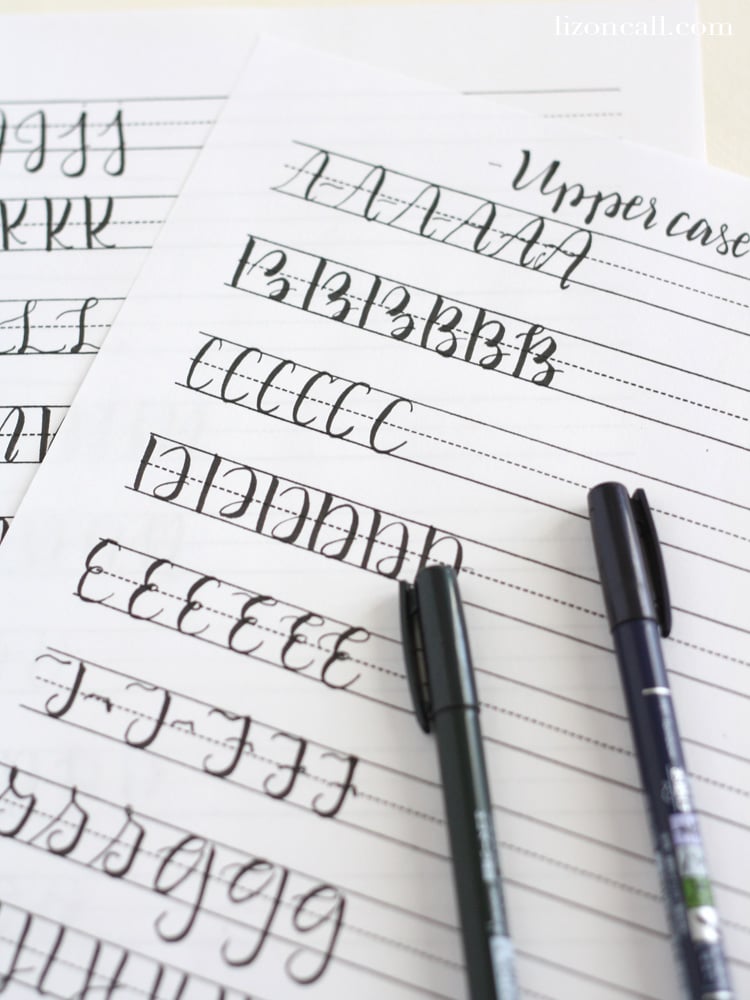 lizoncall.com
- Upper case
A A A A A A
B B B B B B
C C C C C C
D D D D D D
E E E E E E
F F F F F
G G G G G G
J J J
K K K
L L